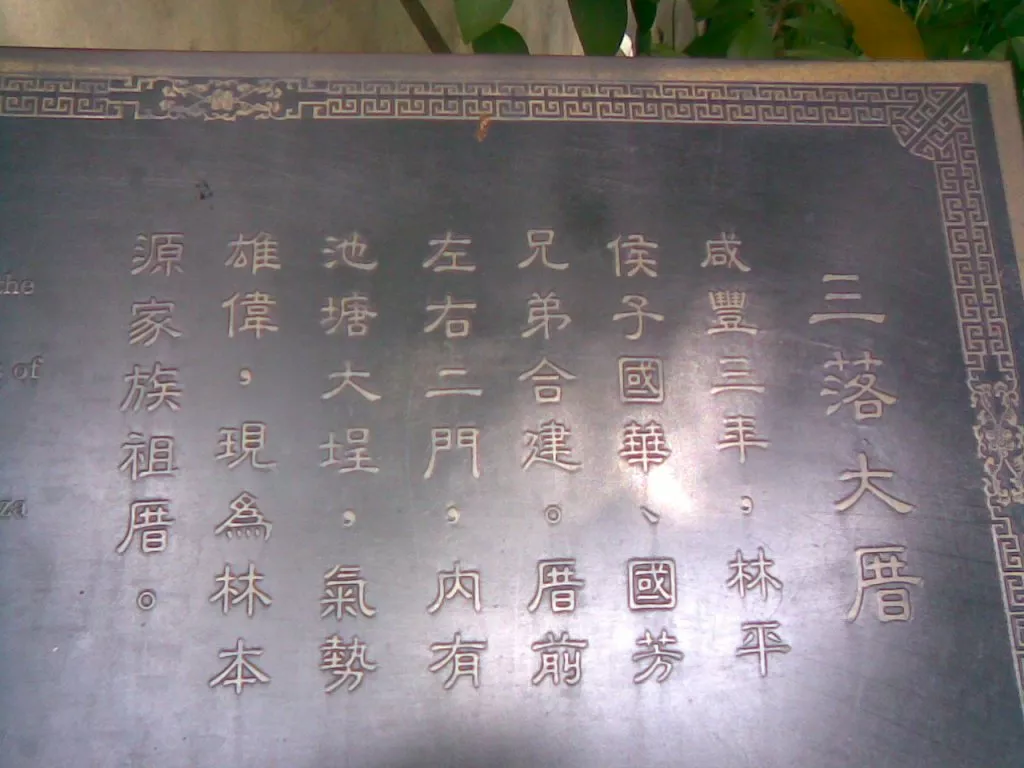 三落大厝
咸豐三年，林平
侯子國華、國芳
兄弟合建。厝前
左右二門，內有
池塘大埕，氣勢
雄偉，現為林本
源家族祖厝。
the
of
za